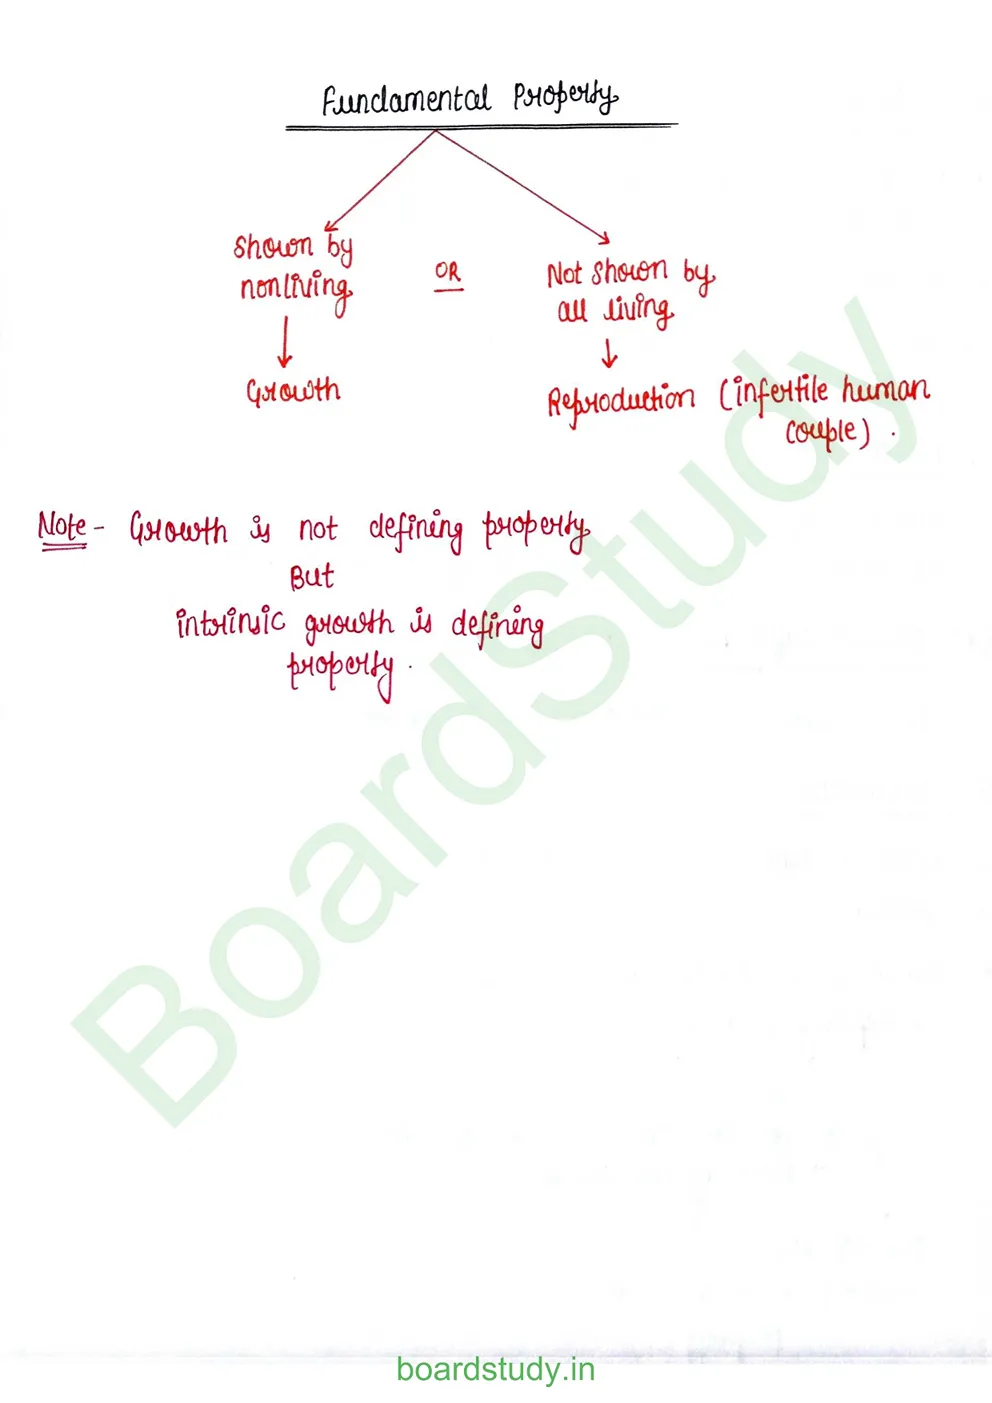 Fundamental Property
Shown by
nonliving
OR
Not shown by
all living
Growth
Reproduction (infertile human
couple).
Note - Growth is not defining property
But
intrinsic growth is defining
property.
BoardStudy
boardstudy.in